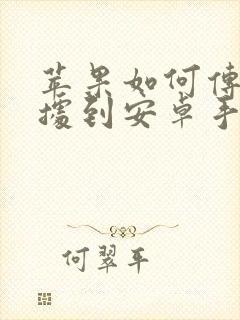 苹果如何传
据到安卓手
何翠平